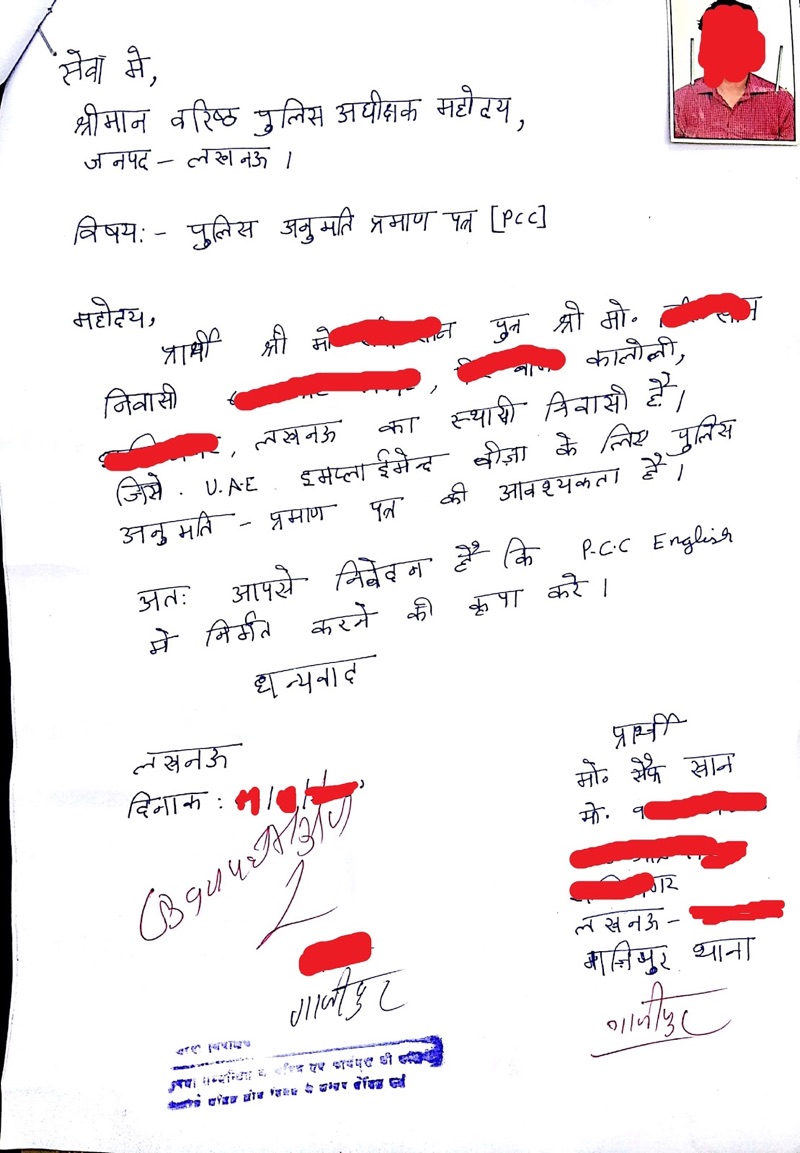 सेवा मे,
श्रीमान वरिष्ठ पुलिस अधीक्षक महोदय,
जनपद - लखनऊ ।
विषय:- पुलिस अनुमति प्रमाण पत्र [PCC]
महोदय,
प्रार्थी श्री मो पुत्र श्री मो॰
निवासी , कालोनी,
, लखनऊ का स्थायी निवासी है।
जिसे . U.A.E इमप्लाईमेन्ट वीज़ा के लिए पुलिस
अनुमति - प्रमाण पत्र की आवश्यकता है।
अतः आपसे निवेदन है कि P.C.C English
मे निर्मत करने की कृपा करे ।
धन्यवाद
लखनऊ
दिनाक :
प्रार्थी
मो॰ सैफ खान
मो॰
लखनऊ -
गाज़िपुर थाना
गाजीपुर
गाजीपुर